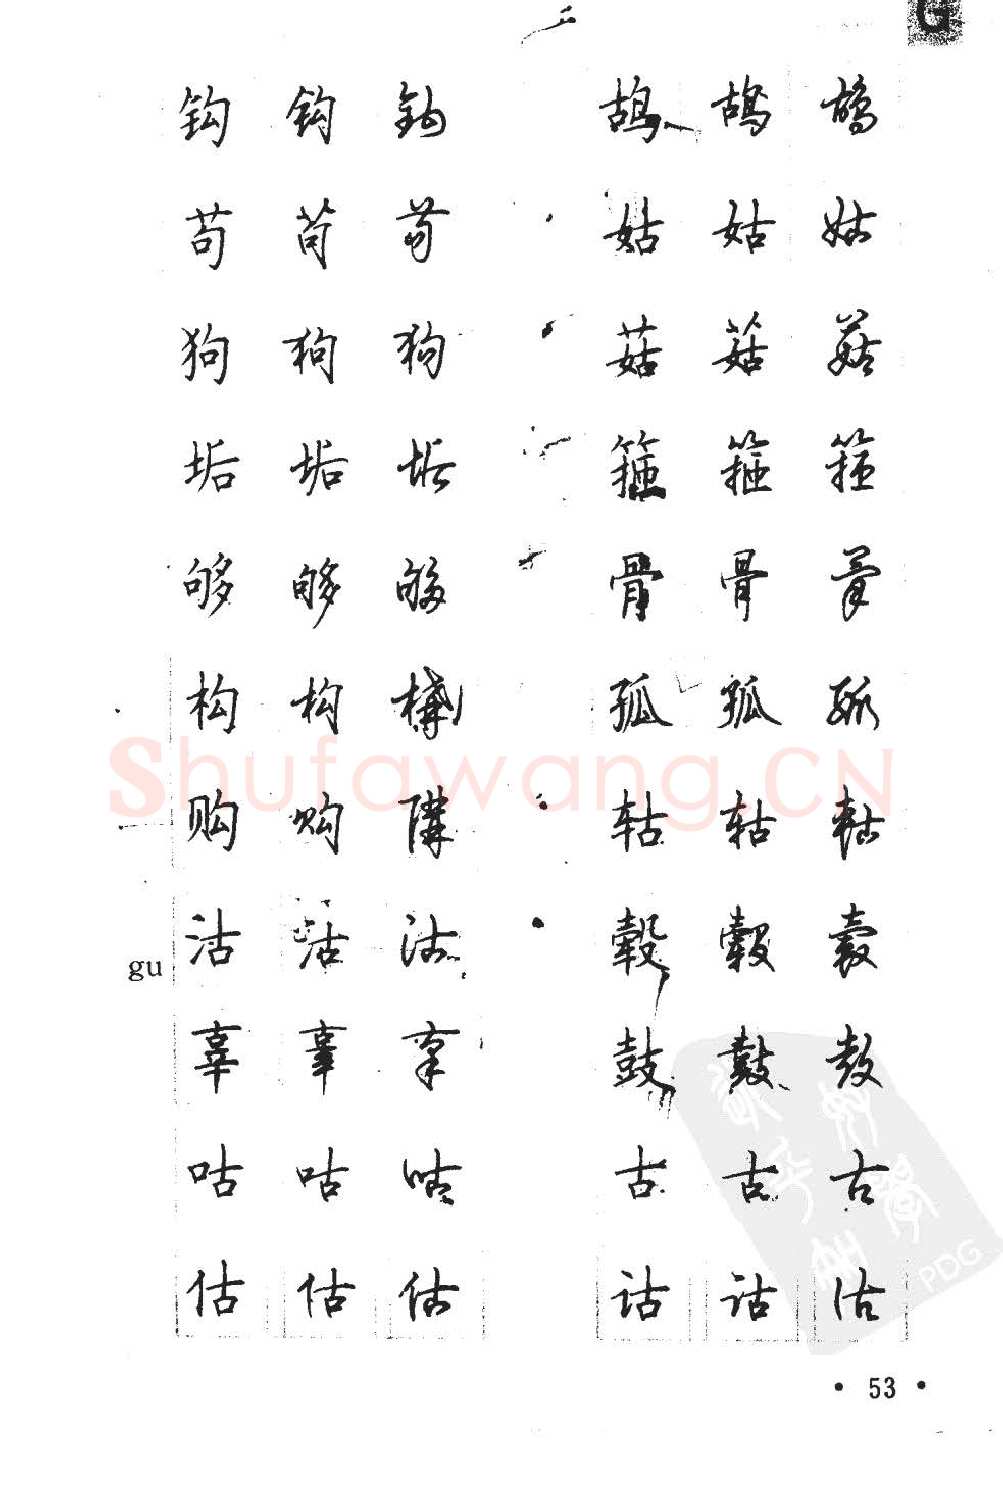 G
钩 钩 鈎 鸪 鸪 鴣
苟 苟 苟 姑 姑 姑
狗 狗 狗 菇 菇 菇
垢 垢 垢 箍 箍 箍
够 够 够 骨 骨 骨
构 构 構 孤 孤 孤
购 购 購 轱 轱 軲
gu 沽 沽 沽 毂 毂 轂
辜 辜 辜 鼓 鼓 鼓
咕 咕 咕 古 古 古
估 估 估 诂 诂 詁
Shufawang.CN
PDG
• 53 •